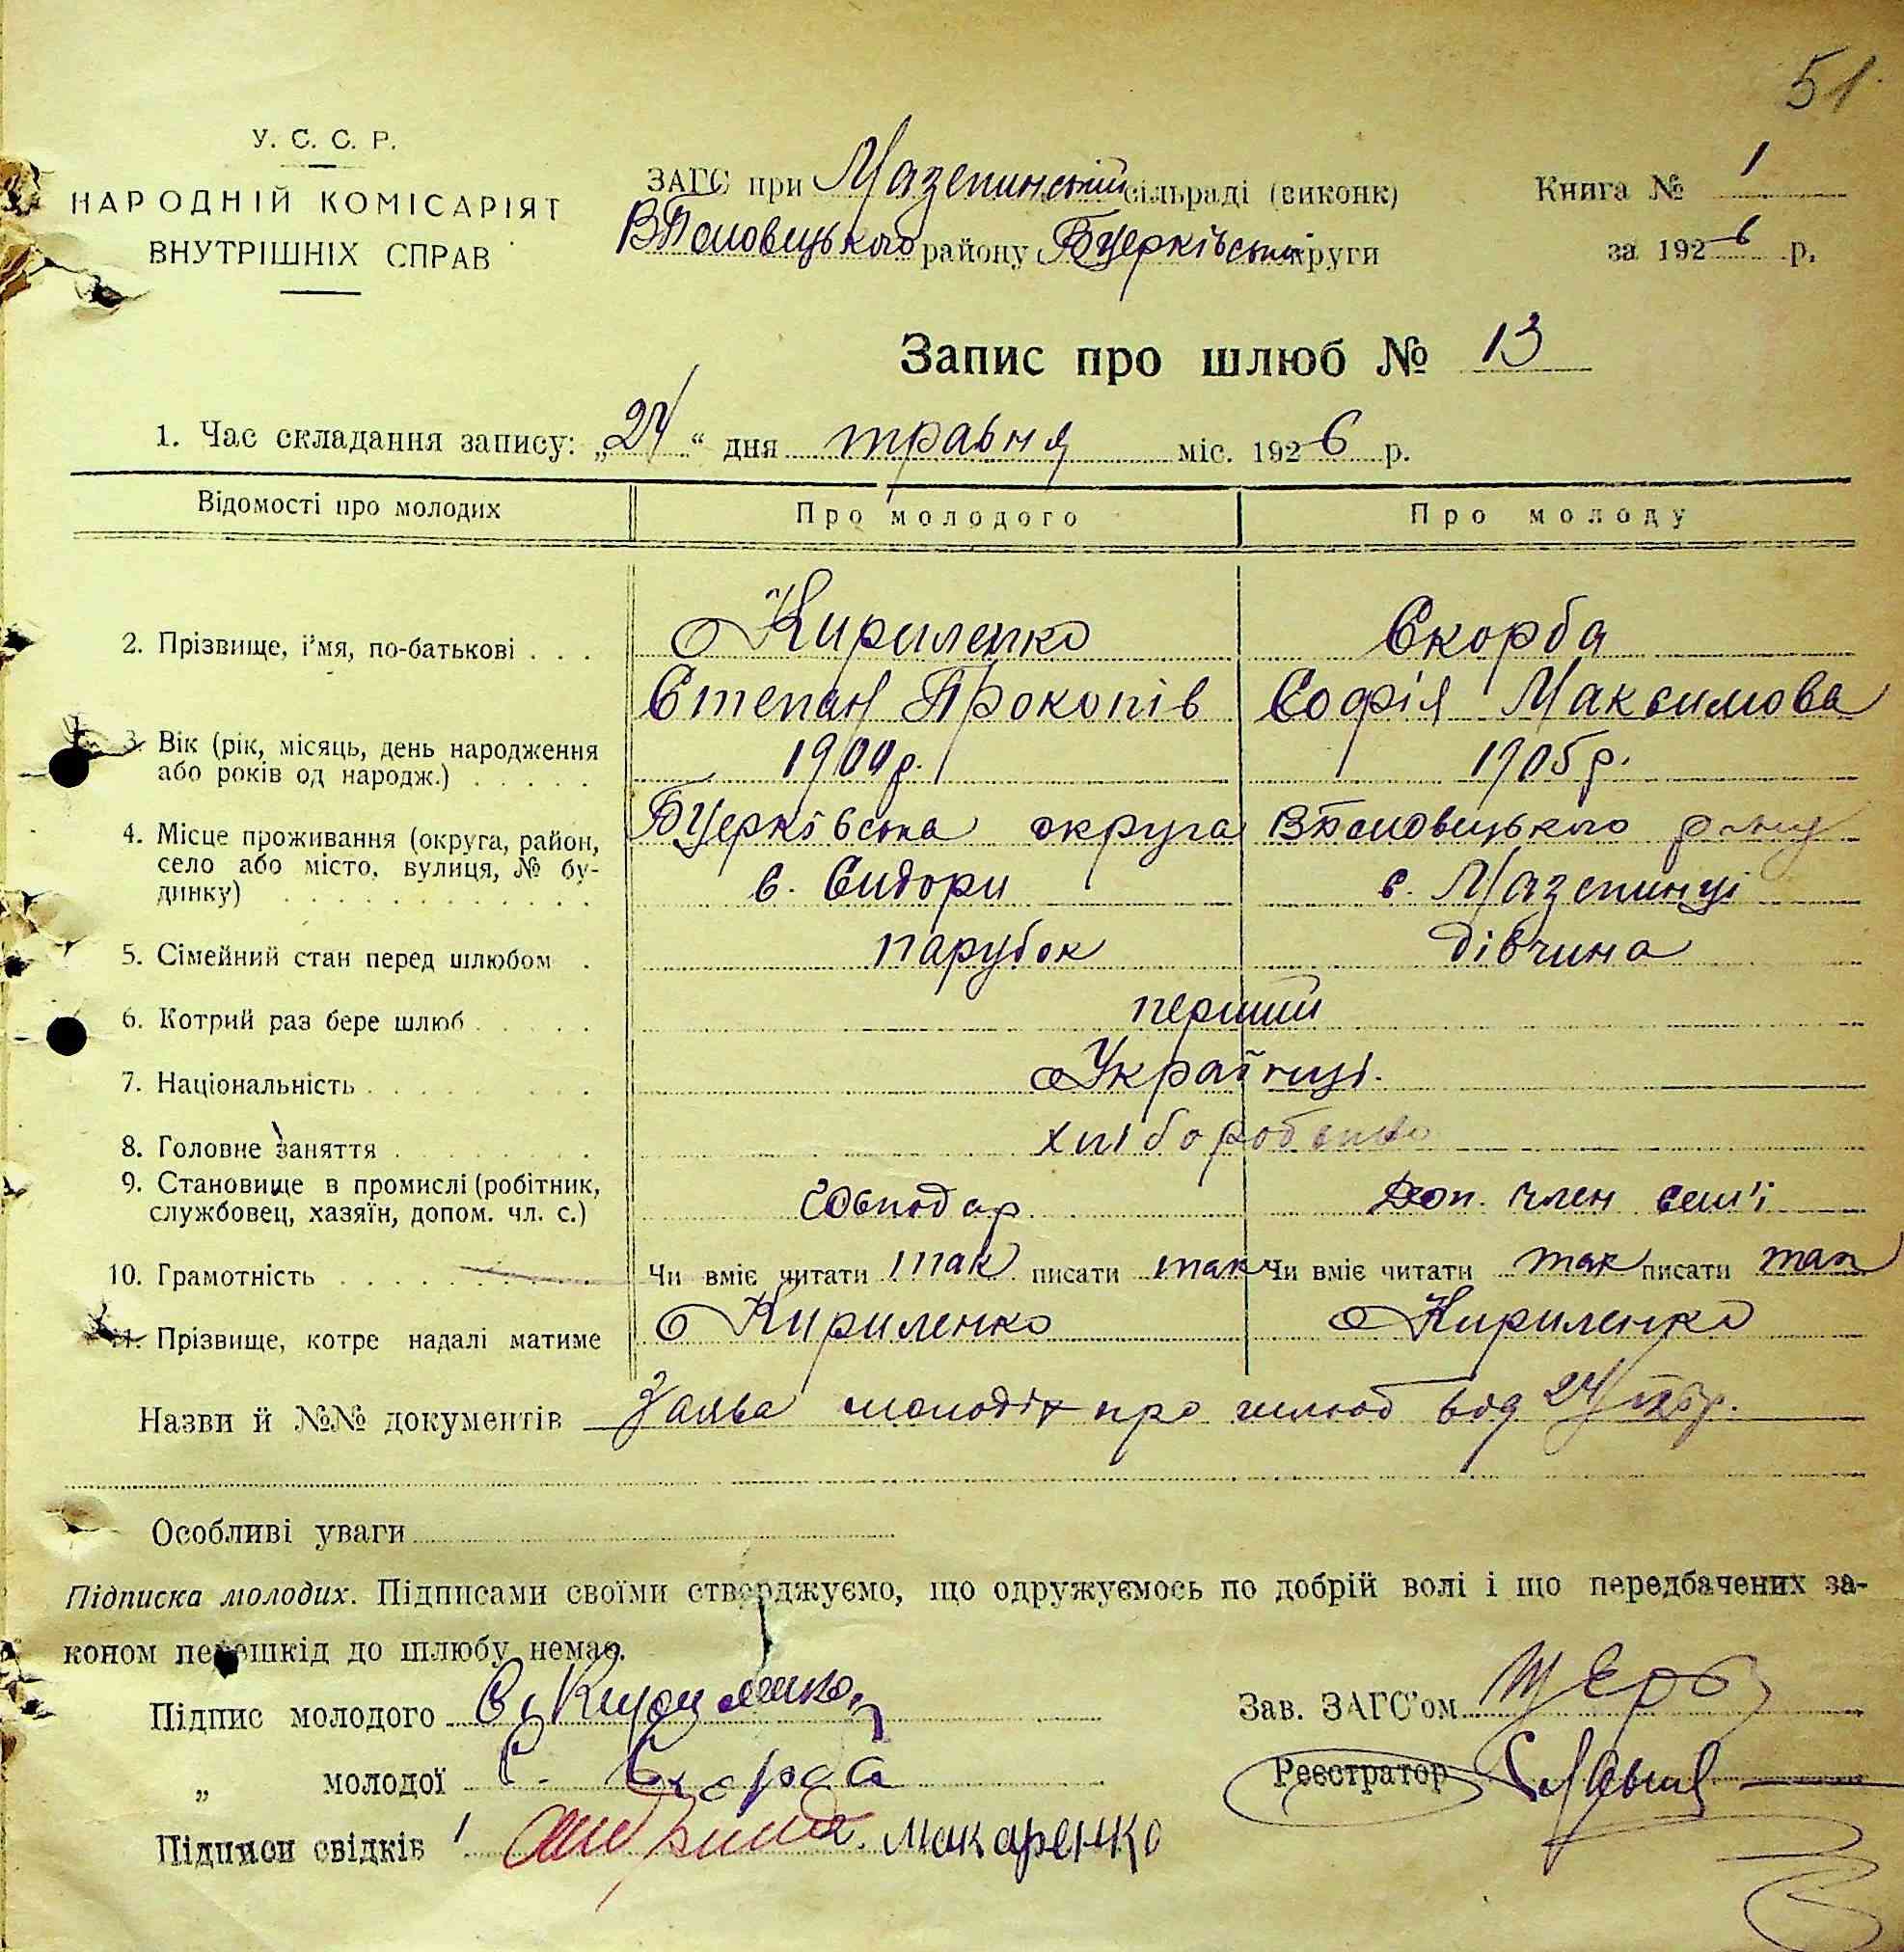 51
У. С. С. Р.
НАРОДНІЙ КОМІСАРІЯТ
ВНУТРІШНІХ СПРАВ
ЗАГС при Мазепинській сільраді (виконк)
ВПоловецького району БЦерківської округи
Книга № 1
за 1926 р.
Запис про шлюб № 13
1. Час складання запису: „24“ дня травня міс. 1926 р.
Відомості про молодих
Про молодого
Про молоду
2. Прізвище, ім'я, по-батькові . . .
Кириленко
Скорба
Степан Прокопів
Софія Максимова
3. Вік (рік, місяць, день народження
або років од народж.) . . . . .
1904 р.
1905 р.
4. Місце проживання (округа, район,
село або місто, вулиця, № бу-
динку) . . . . . . . . . . . .
БЦерківська округа
ВПоловецького р-ну
с. Сидори
с. Мазепинці
5. Сімейний стан перед шлюбом .
парубок
дівчина
6. Котрий раз бере шлюб . . . .
перший
7. Національність . . . . . . . .
Українці.
8. Головне заняття . . . . . . .
хліборобство
9. Становище в промислі (робітник,
службовец, хазяїн, допом. чл. с.)
Господар
Доп. член сем'ї
10. Грамотність . . . . . . . .
Чи вміє читати так писати так
Чи вміє читати так писати так
11. Прізвище, котре надалі матиме
Кириленко
Кириленко
Назви й №№ документів Заява молодіх про шлюб від 24/
Особливі уваги
Підписка молодих. Підписами своїми стверджуємо, що одружуємось по добрій волі і що передбачених за-
коном перешкід до шлюбу немає.
Підпис молодого С. Кириленко
Зав. ЗАГС'ом
„ молодої С. Скорба
Реєстратор
Підписи свідків Макаренко